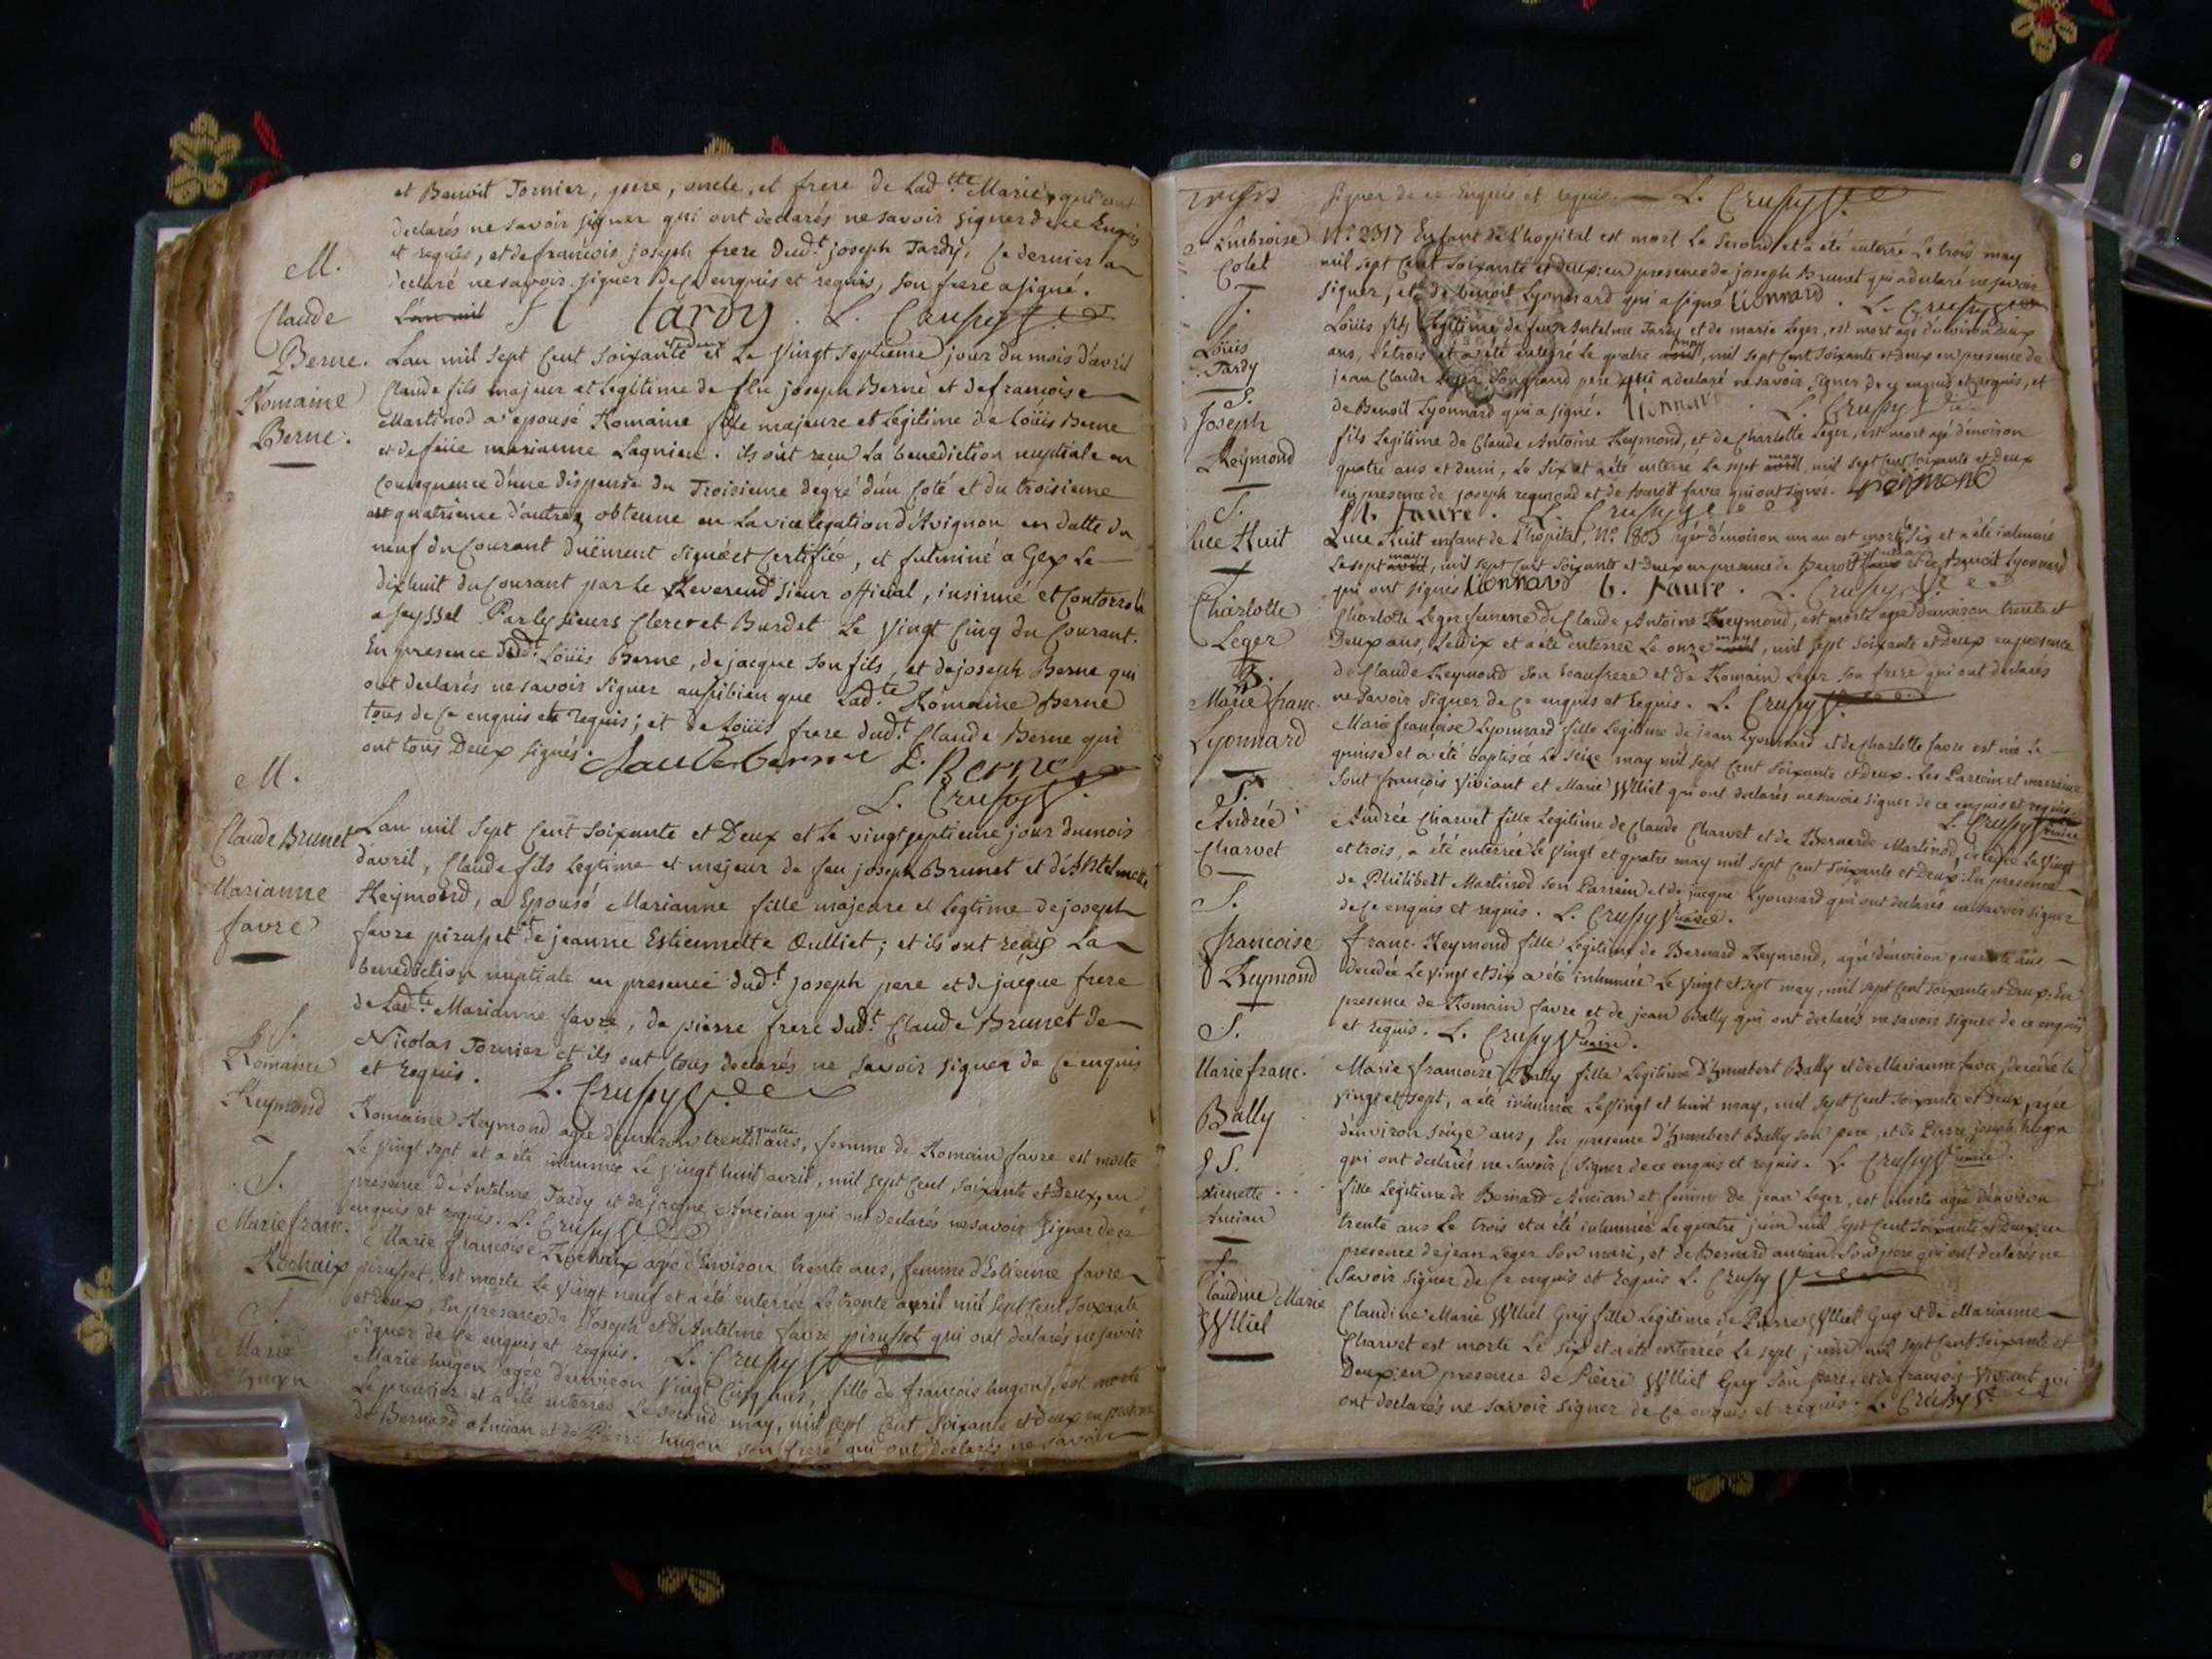 et Benoit Tornier, pere, oncle, et frere de Lad.tte Marie, qui ont
declarés ne savoir signer qui ont declarés ne savoir signer de ce Enquis
et requis, et de francois joseph frere dud.t joseph Tardy, Ce dernier a
declaré ne savoir signer de ce enquis et requis, son frere a signé.
M.
L'an mil tardy. L. Crussy
Claude
Berne.
Romaine
Berne.
Lan mil sept Cent soixante et deux et Le Vingt septieme jour du mois d'avril
Claude fils majeur et Legitime de feu joseph Berne et de francoise
Martinod a epousé Romaine fille majeure et Legitime de Loüis Berne
et de feüe marianne Lagnieu. ils ont reçu La benediction nuptiale en
Consequence d'une dispense du Troisieme degré d'un Coté et du troisieme
au quatrieme d'autre, obtenue en La vicelegation d'Avignon en datte du
neuf du Courant düement signée et Certifiée, et fulminé a Gex Le
dixhuit du Courant par Le Reverend sieur official, insinué et Controrolé
a seyssel Par Les sieurs Clerc et Burdet Le Vingt Cinq du Courant.
En presence dud.t Loüis Berne, de jacque son fils, et de joseph Berne qui
ont declarés ne savoir signer aussibien que Lad.te Romaine Berne
tous de Ce enquis et requis; et de Loüis frere dud.t Claude Berne qui
ont tous Deux signés. Claude berne L. Berne
L. Crussy
M.
Claude Brunet
Marianne
favre
Lan mil sept Cent soixante et Deux et Le vingt septieme jour du mois
d'avril, Claude fils Legtime et majeur de feu joseph Brunet et d'Antelmette
Reymond, a Epousé Marianne fille majeure et Legtime de joseph
favre pirusset et de jeanne Estiennette Oulliet; et ils ont reçus La
benediction nuptiale en presence dud.t joseph pere et de jacque frere
de Lad.te Marianne favre, de pierre frere dud.t Claude Brunet de
Nicolas Tornier et ils ont tous declarés ne savoir signer de Ce enquis
et requis. L. Crussy
S.
Romaine
Reymond
Romaine Reymond agée d'environ trente quatre ans, femme de Romain favre est morte
Le vingt sept et a été inhumée Le vingt huit avril, mil sept Cent soixante et Deux, en
presence d'Antelme Tardy et de jacque Ancian qui ont declarés ne savoir signer de ce
enquis et requis. L. Crussy
S.
Marie franc.
Rochaix
Marie francoise Rochaix agée d'Environ trente ans, femme d'Estienne favre
pirusset, est morte Le vingt neuf et a été enterrée Le trente avril mil sept Cent soixante
et Deux, En presence de Joseph et d'Antelme favre pirusset qui ont declarés ne savoir
signer de Ce enquis et requis. L. Crussy
S.
Marie
hugon
Marie hugon agée d'environ Vingt Cinq ans, fille de francois hugon, est morte
Le premier et a été enterrée Le second may, mil sept Cent soixante et Deux en presence
de Bernard Ancian et de Pierre hugon son frere qui ont declarés ne savoir
signer de ce Enquis et requis. L. Crussy
Ambroise
Colet
N.o 2317 Enfant de L'hopital est mort Le second et a été enterré Le trois may
mil sept Cent soixante et deux: en presence de joseph Brunet qui a declaré ne savoir
signer, et de benoit Lyonnard qui a signé Lionnard. L. Crussy
S.
Loüis
Tardy
Loüis fils Legitime de feu Antelme Tardy et de marie Leger, est mort agé d'environ deux
ans, Le trois et a été enterré Le quatre may, mil sept Cent soixante et Deux en presence de
jean Claude Leger Son grand pere qui a declaré ne savoir signer de ce enquis et requis, et
de Benoit Lyonnard qui a signé. Lionnard. L. Crussy
S.
Joseph
Reymond
fils Legitime de Claude Antoine Reymond, et de Charlotte Leger, est mort agé d'environ
quatre ans et demi, Le six et a été enterré Le sept may, mil sept Cent soixante et Deux
en presence de joseph reymond et de benoit favre qui ont signés. reimond
b. faure. L. Crussy
S.
Luce Huit
Luce Huit enfant de L'hôpital, N.o 1803 agée d'environ un an est morte Le six et a été inhumée
Le sept may, mil sept Cent soixante et Deux en presence de Benoit et de Benoit Lyonnard
qui ont signés Lionnard b. faure. L. Crussy
Charlotte
Leger
Charlotte Leger femme de Claude Antoine Reymond, est morte agée d'environ trente et
Deux ans, Le dix et a été enterrée Le onze may, mil sept soixante et Deux en presence
de Claude Reymond son beaufrere et de Romain Leger son frere qui ont declarés
ne savoir signer de Ce enquis et requis. L. Crussy
B.
Marie franc.
Lyonnard
Marie francoise Lyonnard fille Legitime de jean Lyonnard et de Charlotte favre est née Le
quinze et a été baptisée Le seize may mil sept Cent soixante et deux. Les Parrein et marreine
sont francois Viviant et Marie Vulliet qui ont declarés ne savoir signer de ce enquis et requis.
L. Crussy vicaire
S.
Andrée
Charvet
Andrée Charvet fille Legitime de Claude Charvet et de Bernarde Martinod, decedée Le vingt
et trois, a été enterrée Le Vingt et quatre may mil sept Cent soixante et Deux: En presence
de Philibert Martinod son Parrein et de jacque Lyonnard qui ont declarés ne savoir signer
de Ce enquis et requis. L. Crussy vicaire.
S.
francoise
Reymond
franc. Reymond fille Legitime de Bernard Reymond, agée d'environ quarante ans
Decedée Le vingt et six a été inhumée Le vingt et sept may, mil sept Cent soixante et Deux, En
presence de Romain favre et de jean Bally qui ont declarés ne savoir signer de ce enquis
et requis. L. Crussy vicaire.
S.
Marie franc.
Bally
Marie francoise Bally fille Legitime D'humbert Bally et de Marianne favre, decedée Le
vingt et sept, a été inhumée Le vingt et huit may, mil sept Cent soixante et Deux, agée
d'environ seize ans, En presence d'humbert Bally son pere, et de Pierre joseph hugon
qui ont declarés ne savoir signer de ce enquis et requis. L. Crussy vicaire.
S.
Ancian
fille Legitime de Bernard Ancian et femme de jean Leger, est morte agée d'environ
trente ans Le trois et a été inhumée Le quatre juin mil sept Cent soixante et Deux, en
presence de jean Leger son mari, et de Bernard ancian son pere qui ont declarés ne
savoir signer de Ce enquis et requis L. Crussy
Claudine Marie
Vulliet
Claudine Marie Vulliet Guy fille Legitime de Pierre Vulliet Guy et de Marianne
Charvet est morte Le six et a été enterrée Le sept juin mil sept Cent soixante et
Deux: en presence de Pierre Vulliet Guy son pere, et de francois Viviant qui
ont declarés ne savoir signer de Ce enquis et requis. L. Crussy